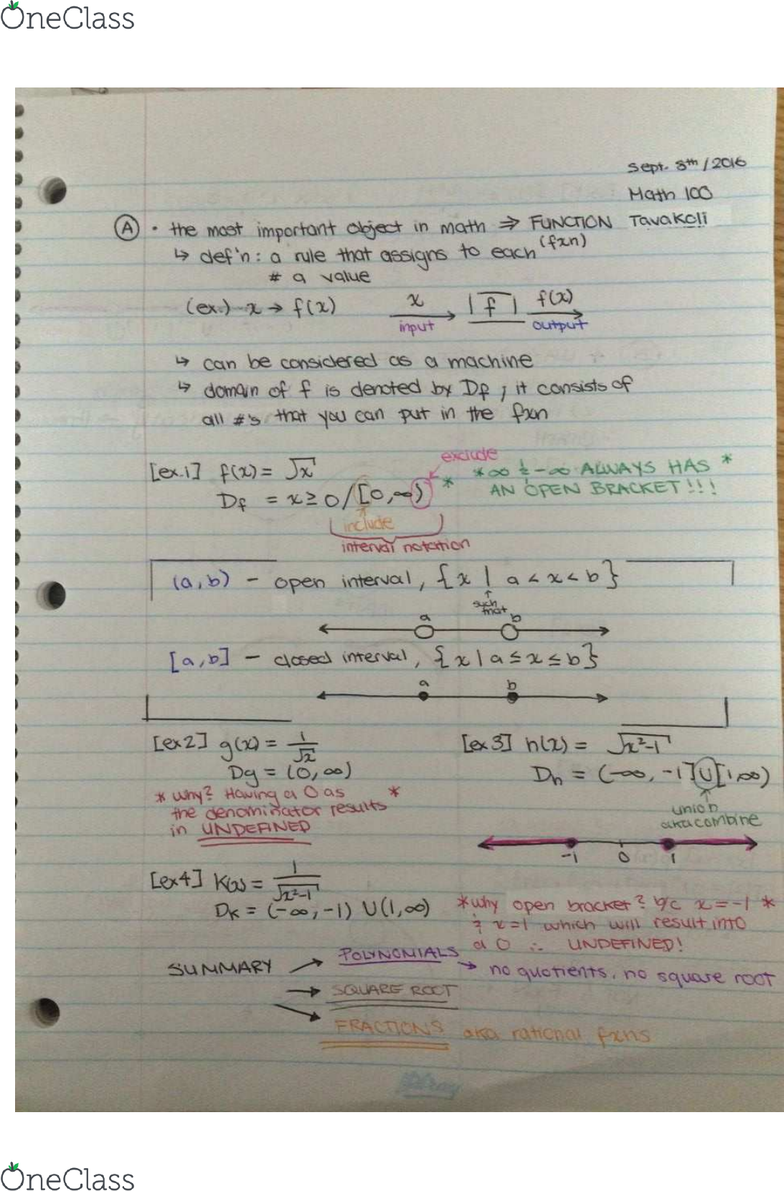 OneClass
Sept. 8th/2016
Math 100
Tavakoli
Ⓐ • the most important object in math ⇒ FUNCTION
(fxn)
↳ def'n: a rule that assigns to each
# a value
(ex.) x → f(x)   x → |f| f(x) →
input   output
↳ can be considered as a machine
↳ domain of f is denoted by Df ; it consists of
all #'s that you can put in the fxn
exclude
[ex.1] f(x) = √x   * ∞ & -∞ ALWAYS HAS *
Df = x ≥ 0 / [0, ∞) *   AN OPEN BRACKET!!!
include
interval notation
(a,b) - open interval, {x | a < x < b}
such
that
a   b
[a,b] - closed interval, {x | a ≤ x ≤ b}
a   b
[ex2] g(x) = 1/√x   [ex3] h(x) = √x²-1
Dg = (0, ∞)   Dh = (-∞, -1] U [1, ∞)
* why? Having a 0 as *
the denominator results
in UNDEFINED
union
aka combine
-1   0   1
[ex4] K(x) = 1/√x²-1
DK = (-∞, -1) U (1, ∞)
*why open bracket? b/c x = -1 *
& x=1 which will result into
a 0 ∴ UNDEFINED!
SUMMARY → POLYNOMIALS → no quotients, no square root
→ SQUARE ROOT
→ FRACTIONS aka rational fxns
OneClass